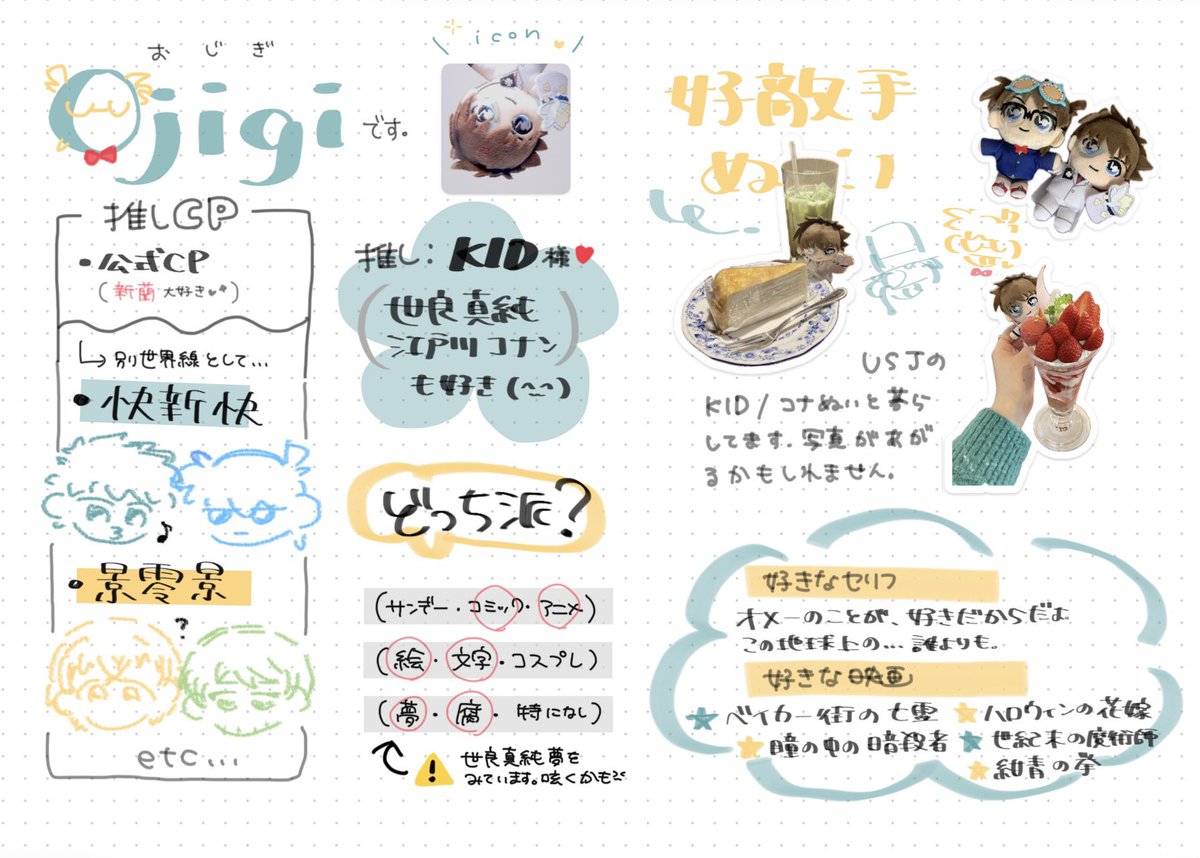 おじぎ
Ojigi
です。
icon
推しCP
・公式CP
(新蘭 大好き)
別世界線として…
・快新快
♪
・景零景
?
etc...
推し: KID様♥
(世良真純
江戸川コナン)
も好き(^-^)
どっち派?
(サンデー・コミック・アニメ)
(絵・文字・コスプレ)
(夢・腐・特になし)
!
世良真純夢を
みています。呟くかも
好敵手
ぬい
USJの
KID/コナぬいと暮ら
してます。写真があが
るかもしれません。
好きなセリフ
オメーのことが、好きだからだよ
この地球上の…誰よりも。
好きな映画
★ベイカー街の亡霊
★ハロウィンの花嫁
★瞳の中の暗殺者
★世紀末の魔術師
★紺青の拳